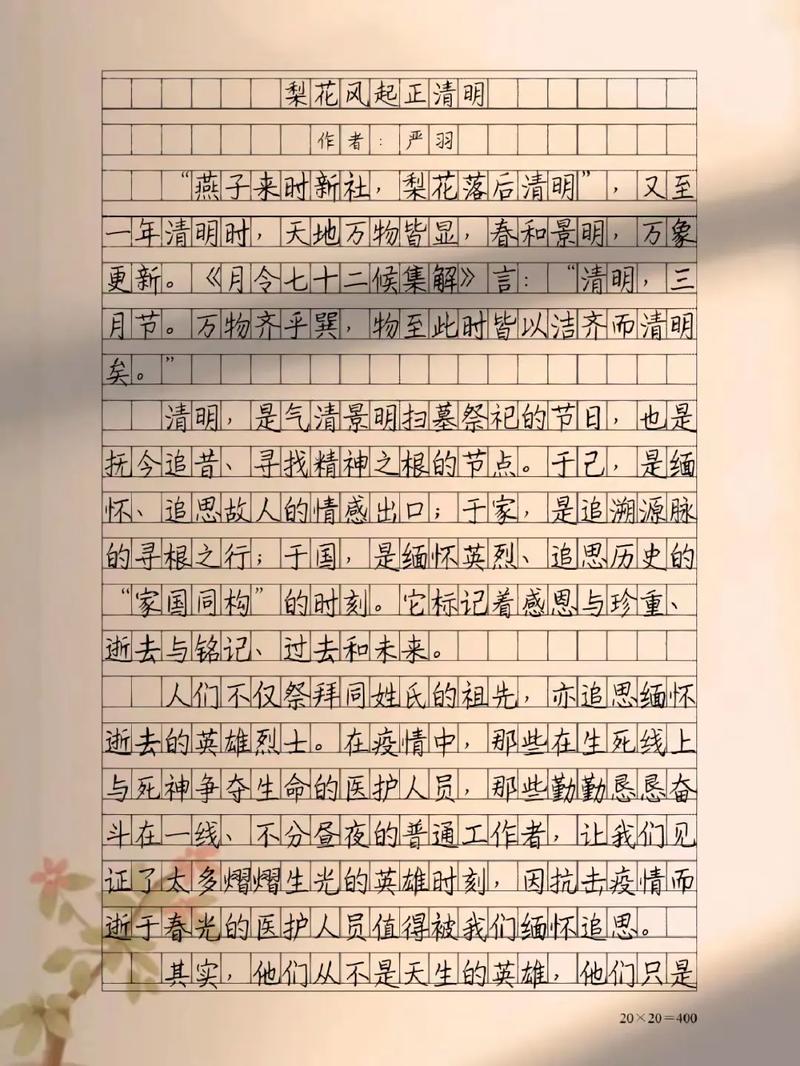 梨花风起正清明
作者：严羽
“燕子来时新社，梨花落后清明”，又至
一年清明时，天地万物皆显，春和景明，万象
更新。《月令七十二候集解》言：“清明，三
月节。万物齐乎巽，物至此时皆以洁齐而清明
矣。”
清明，是气清景明扫墓祭祀的节日，也是
抚今追昔、寻找精神之根的节点。于己，是缅
怀、追思故人的情感出口；于家，是追溯源脉
的寻根之行；于国，是缅怀英烈、追思历史的
“家国同构”的时刻。它标记着感恩与珍重、
逝去与铭记、过去和未来。
人们不仅祭拜同姓氏的祖先，亦追思缅怀
逝去的英雄烈士。在疫情中，那些在生死线上
与死神争夺生命的医护人员，那些勤勤恳恳奋
斗在一线、不分昼夜的普通工作者，让我们见
证了太多熠熠生光的英雄时刻，因抗击疫情而
逝于春光的医护人员值得被我们缅怀追思。
其实，他们从不是天生的英雄，他们只是
20×20=400